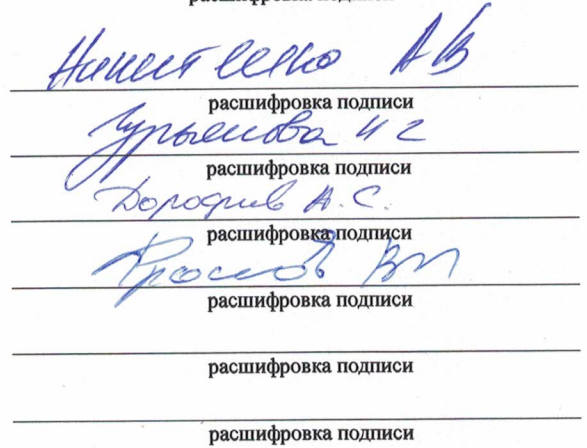 расшифровка подписи
Никитенко АВ
расшифровка подписи
Гурьянова И Г
расшифровка подписи
Дорофеев А.С.
расшифровка подписи
Фролов ВП
расшифровка подписи
расшифровка подписи
расшифровка подписи